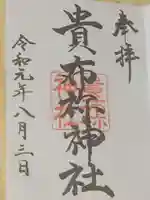 奉拝
貴布祢神社
令和元年八月三日